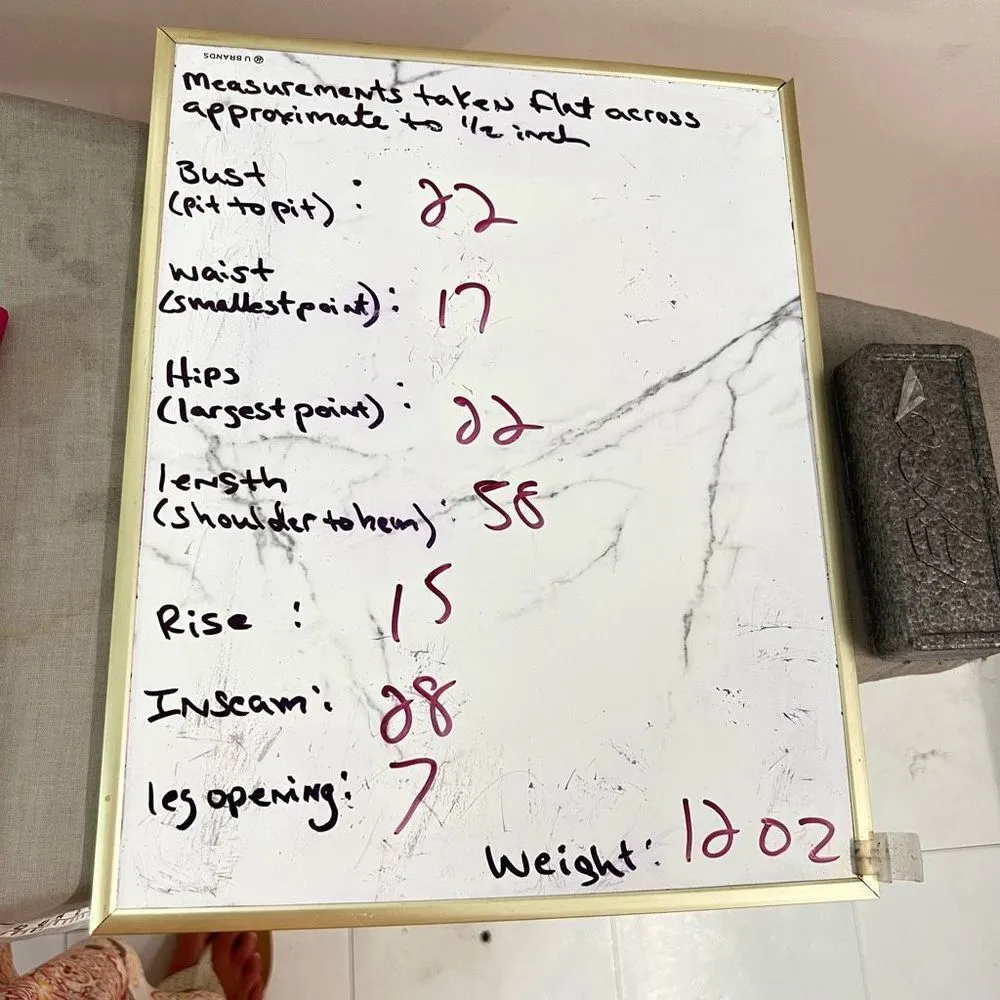 U BRANDS
Measurements taken flat across
approximate to 1/2 inch
Bust
(pit to pit) : 22
Waist
(smallest point) : 17
Hips
(largest point) : 22
length
(shoulder to hem) : 58
Rise : 15
Inseam : 28
leg opening : 7
Weight : 12 oz